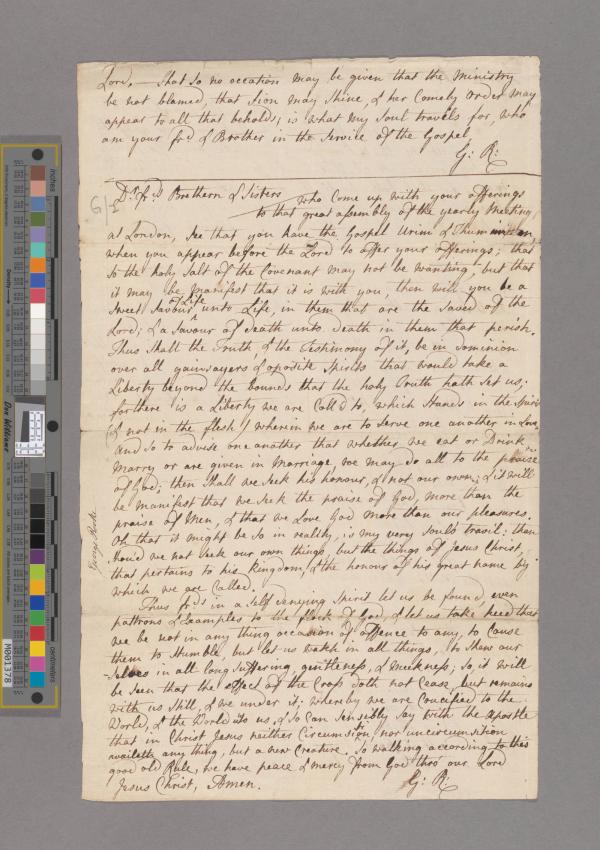 Lord. — That so no occation may be given that the Ministry
be not blamed, that Sion may Shine, & her Comely order may
appear to all that beholds; is what my Soul travels for, who
am your frd & Brother in the Service of the Gospel,
G: R:
Dr frds Brethern & Sisters who Come up with your offerings
to that great assembly of the yearly Meeting,
at London, See that you have the Gospel Urim & Thummim on
when you appear before the Lord to offer your offerings; that
So the holy Salt of the Covenant may not be wanting; but that
it may be manifest that it is with you, then will you be a
Sweet Savour of Life unto Life, in them that are the Saved of the
Lord; & a Savour of Death unto Death in them that perish.
Thus Shall the Truth & the Testimony of it, be in dominion
over all gainsayers & oposite Spirits that would take a
Liberty beyond the bounds that the holy Truth hath Set us;
for there is a Liberty we are Call'd to, which Stands in the Spirit
(& not in the flesh) wherein we are to Serve one another in Love,
and So to advise one another that whether we eat or Drink
Marry or are given in Marriage we may do all to the praise
of God; then Shall we Seek his honour, & not our own; & it will
be manifest that we Seek the praise of God, more than the
praise of Men, & that we Love God more than our pleasures.
Oh that it might be So in reality, is my very Souls travil: than
Shou'd we not Seek our own things, but the things of Jesus Christ,
that pertains to his Kingdom, & the honour of his great name by
which we are Called.
Thus frds in a Self denying Spirit let us be found even
pattrons & Examples to the flock of God, & let us take heed that
we be not in any thing occasion of offence to any, to Cause
them to Stumble, but let us watch in all things, to Shew our
Selves in all long Suffering, gentleness, & Meekness; So it will
be Seen that the effect of the Cross doth not Cease, but remains
with us Still, & we under it; whereby we are Crucified to the
World, & the World to us, & So Can Sensibly Say with the Apostle
that in Christ Jesus neither Circumsition, nor uncircumsition
availeth any thing, but a new Creature. So walking according to this
good old Rule, we have peace & mercy from God thro' our Lord
Jesus Christ, Amen.
G: R:
G/2
George Rooke
inches
Density
Don Williams
M001378